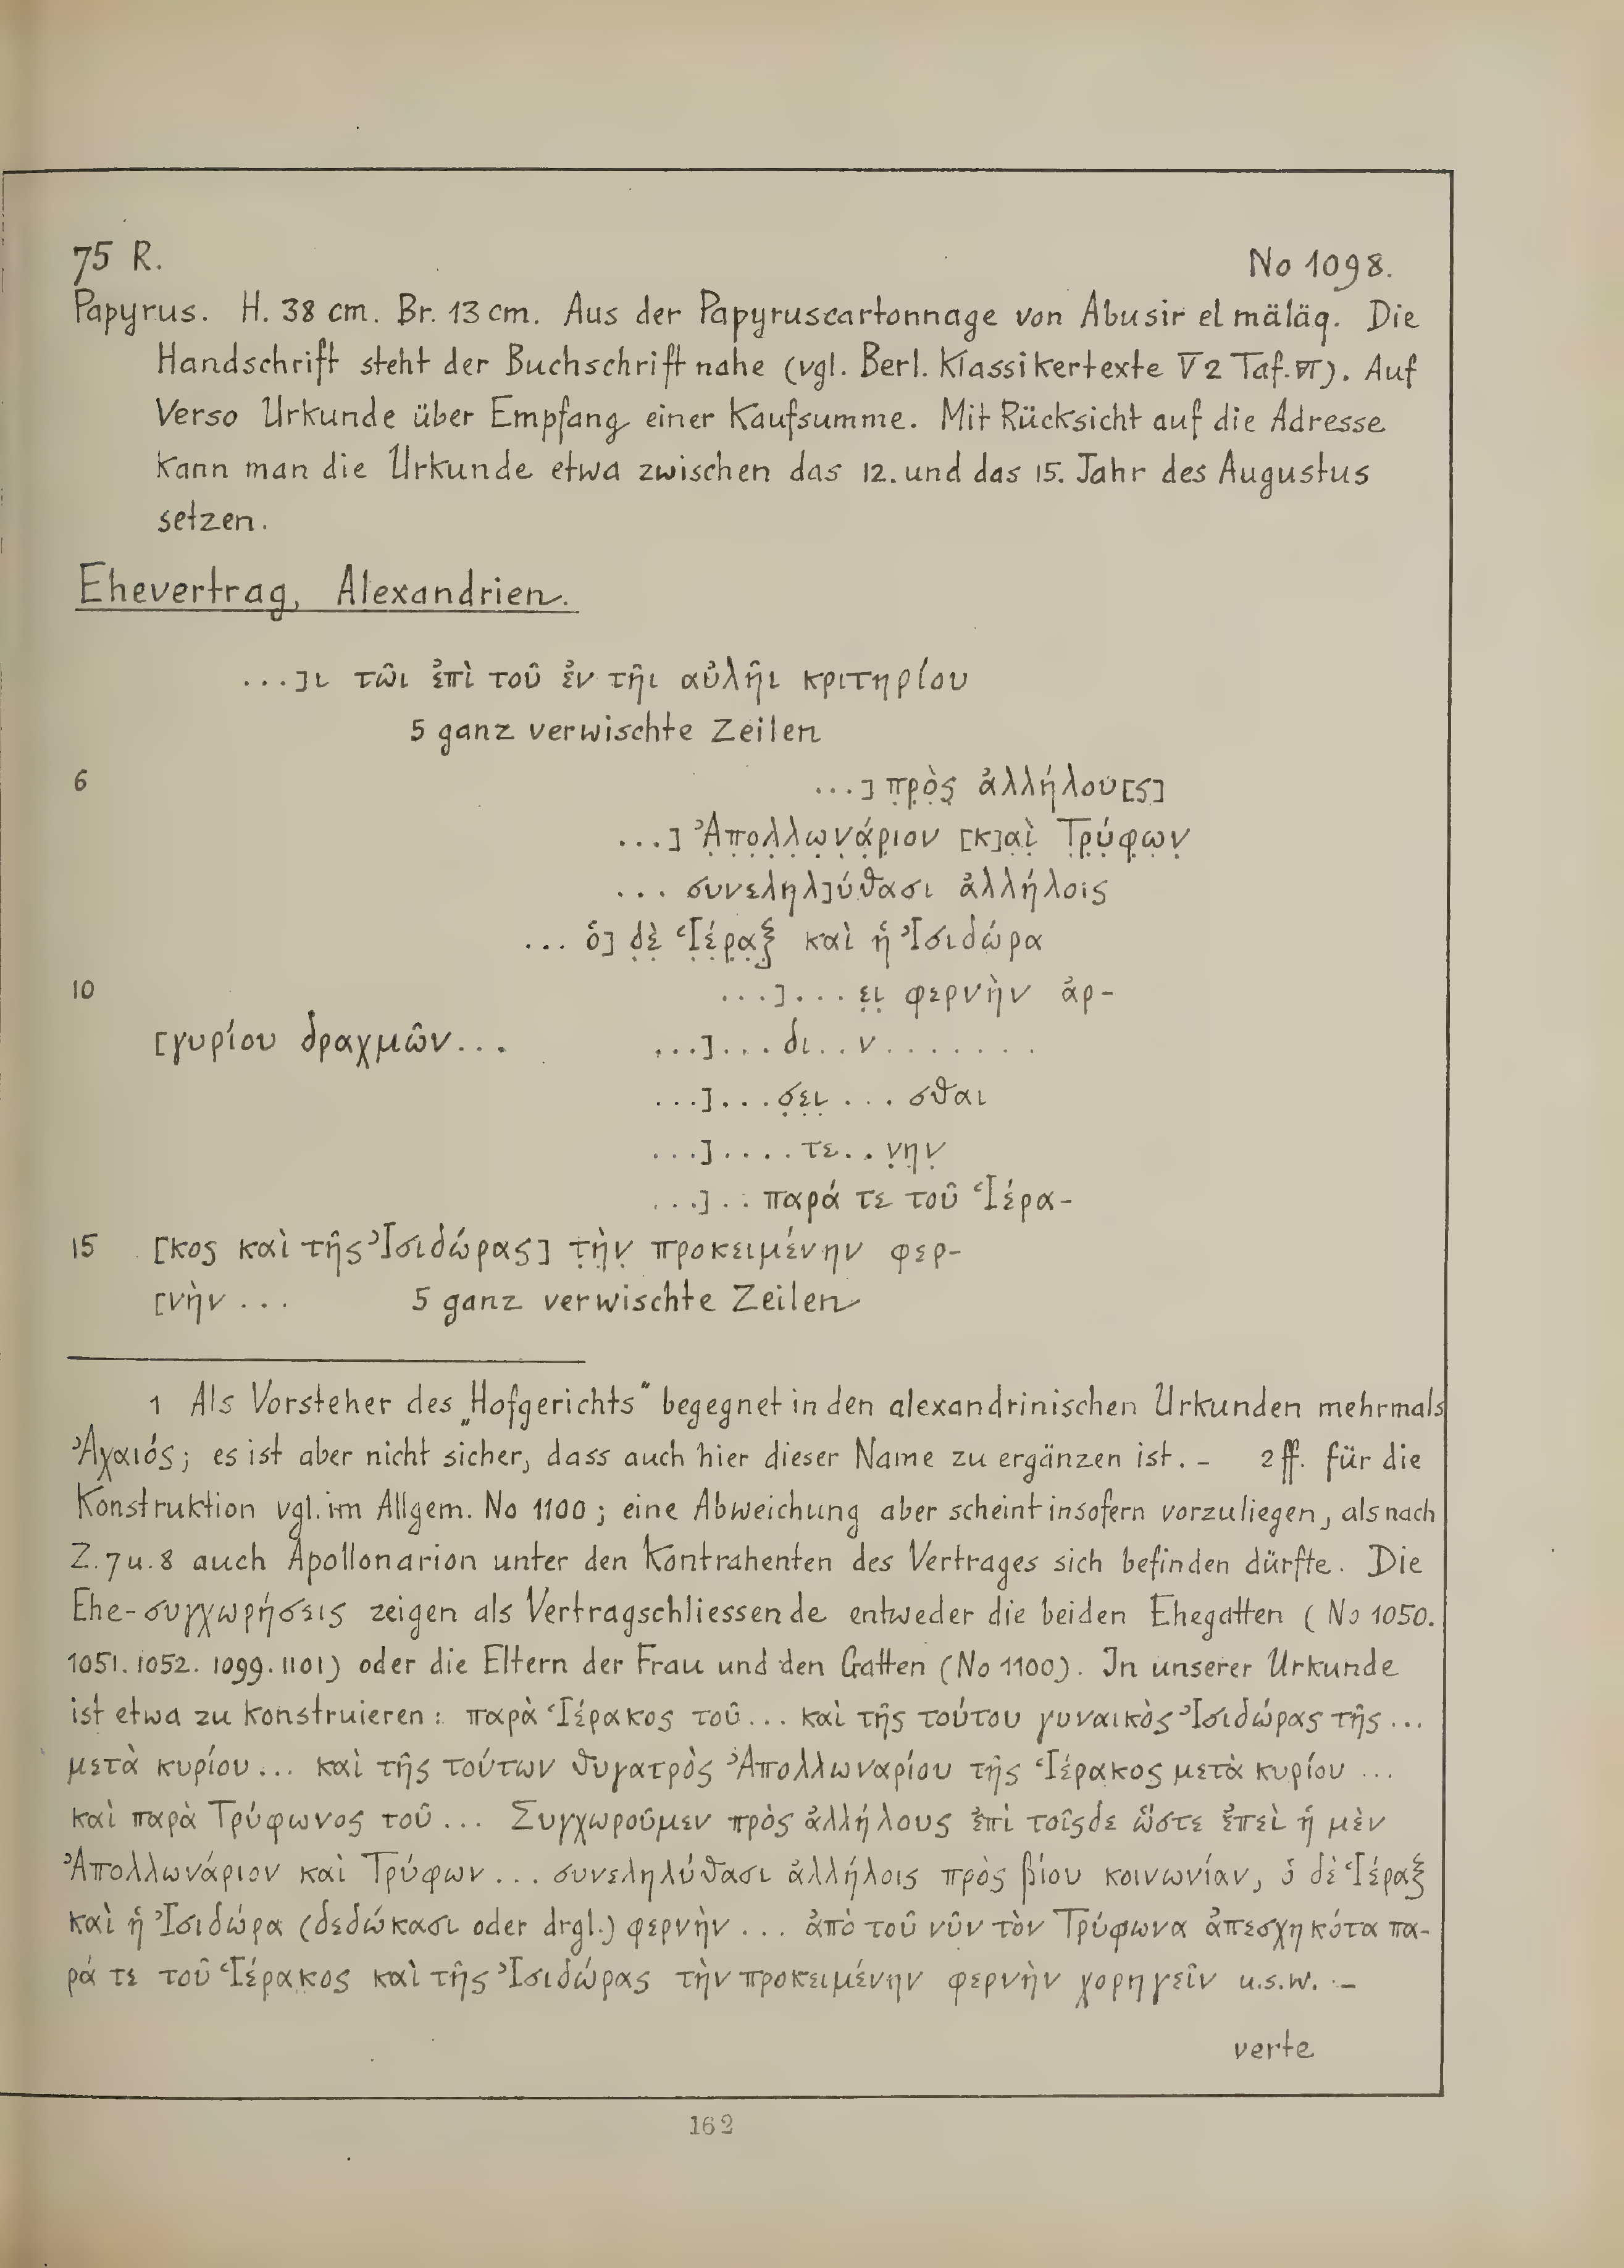 75 R. No 1098.
Papyrus. H. 38 cm. Br. 13 cm. Aus der Papyruscartonnage von Abusir el mäläq. Die
Handschrift steht der Buchschrift nahe (vgl. Berl. Klassikertexte V 2 Taf. VI). Auf
Verso Urkunde über Empfang einer Kaufsumme. Mit Rücksicht auf die Adresse
kann man die Urkunde etwa zwischen das 12. und das 15. Jahr des Augustus
setzen.
Ehevertrag, Alexandrien.
...]ι τῶι ἐπὶ τοῦ ἐν τῆι αὐλῆι κριτηρίου
5 ganz verwischte Zeilen
6 ...] π̣ρ̣ὸ̣ς̣ ἀλλήλου[ς]
...] Ἀ̣π̣ο̣λ̣λ̣ω̣ν̣ά̣ρ̣ιον [κ]α̣ὶ̣ Τ̣ρ̣ύ̣φ̣ω̣ν̣
... συνεληλ]ύθασι ἀλλήλοις
... ὁ] δ̣ὲ̣ Ἱ̣έ̣ρ̣α̣ξ̣ καὶ ἡ Ἰσιδώρα
10 ...]... ε̣ι̣ φερνὴν ἀρ-
[γυρίου δραχμῶν... ...]... δι..ν.......
...]...σ̣ε̣ι̣...σθαι
...]....τε..ν̣η̣ν̣
...]..παρά τε τοῦ Ἱέρα-
15 [κος καὶ τῆς Ἰσιδώρας] τ̣ὴ̣ν̣ προκειμένην φερ-
[νὴν ... 5 ganz verwischte Zeilen
1 Als Vorsteher des „Hofgerichts“ begegnet in den alexandrinischen Urkunden mehrmals
Ἀχαιός; es ist aber nicht sicher, dass auch hier dieser Name zu ergänzen ist. – 2 ff. für die
Konstruktion vgl. im Allgem. No 1100; eine Abweichung aber scheint insofern vorzuliegen, als nach
Z. 7 u. 8 auch Apollonarion unter den Kontrahenten des Vertrages sich befinden dürfte. Die
Ehe-συγχωρήσεις zeigen als Vertragschliessende entweder die beiden Ehegatten (No 1050.
1051. 1052. 1099. 1101) oder die Eltern der Frau und den Gatten (No 1100). In unserer Urkunde
ist etwa zu konstruieren: παρὰ Ἱέρακος τοῦ... καὶ τῆς τούτου γυναικὸς Ἰσιδώρας τῆς ...
μετὰ κυρίου... καὶ τῆς τούτων θυγατρὸς Ἀπολλωναρίου τῆς Ἱέρακος μετὰ κυρίου ...
καὶ παρὰ Τρύφωνος τοῦ ... Συγχωροῦμεν πρὸς ἀλλήλους ἐπὶ τοῖςδε ὥστε ἐπεὶ ἡ μὲν
Ἀπολλωνάριον καὶ Τρύφων ... συνεληλύθασι ἀλλήλοις πρὸς βίου κοινωνίαν, ὁ δὲ Ἱέραξ
καὶ ἡ Ἰσιδώρα (δεδώκασι oder drgl.) φερνὴν ... ἀπὸ τοῦ νῦν τὸν Τρύφωνα ἀπεσχηκότα πα-
ρά τε τοῦ Ἱέρακος καὶ τῆς Ἰσιδώρας τὴν προκειμένην φερνὴν χορηγεῖν u.s.w. –
verte
162